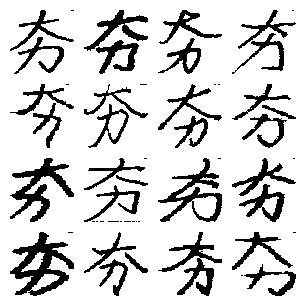 夯夯夯夯
夯夯夯夯
夯夯夯夯
夯夯夯夯